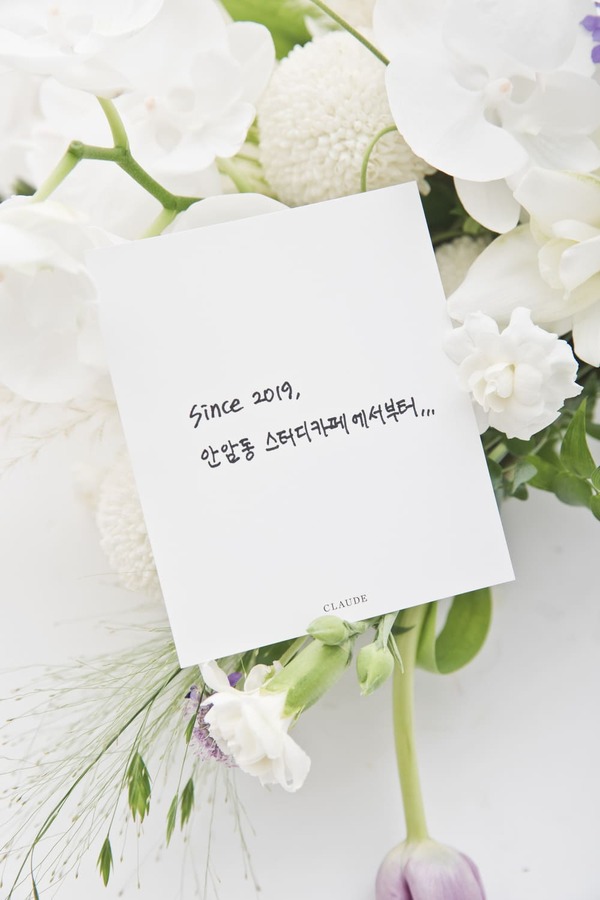 Since 2019,
안암동 스터디카페에서부터...
CLAUDE